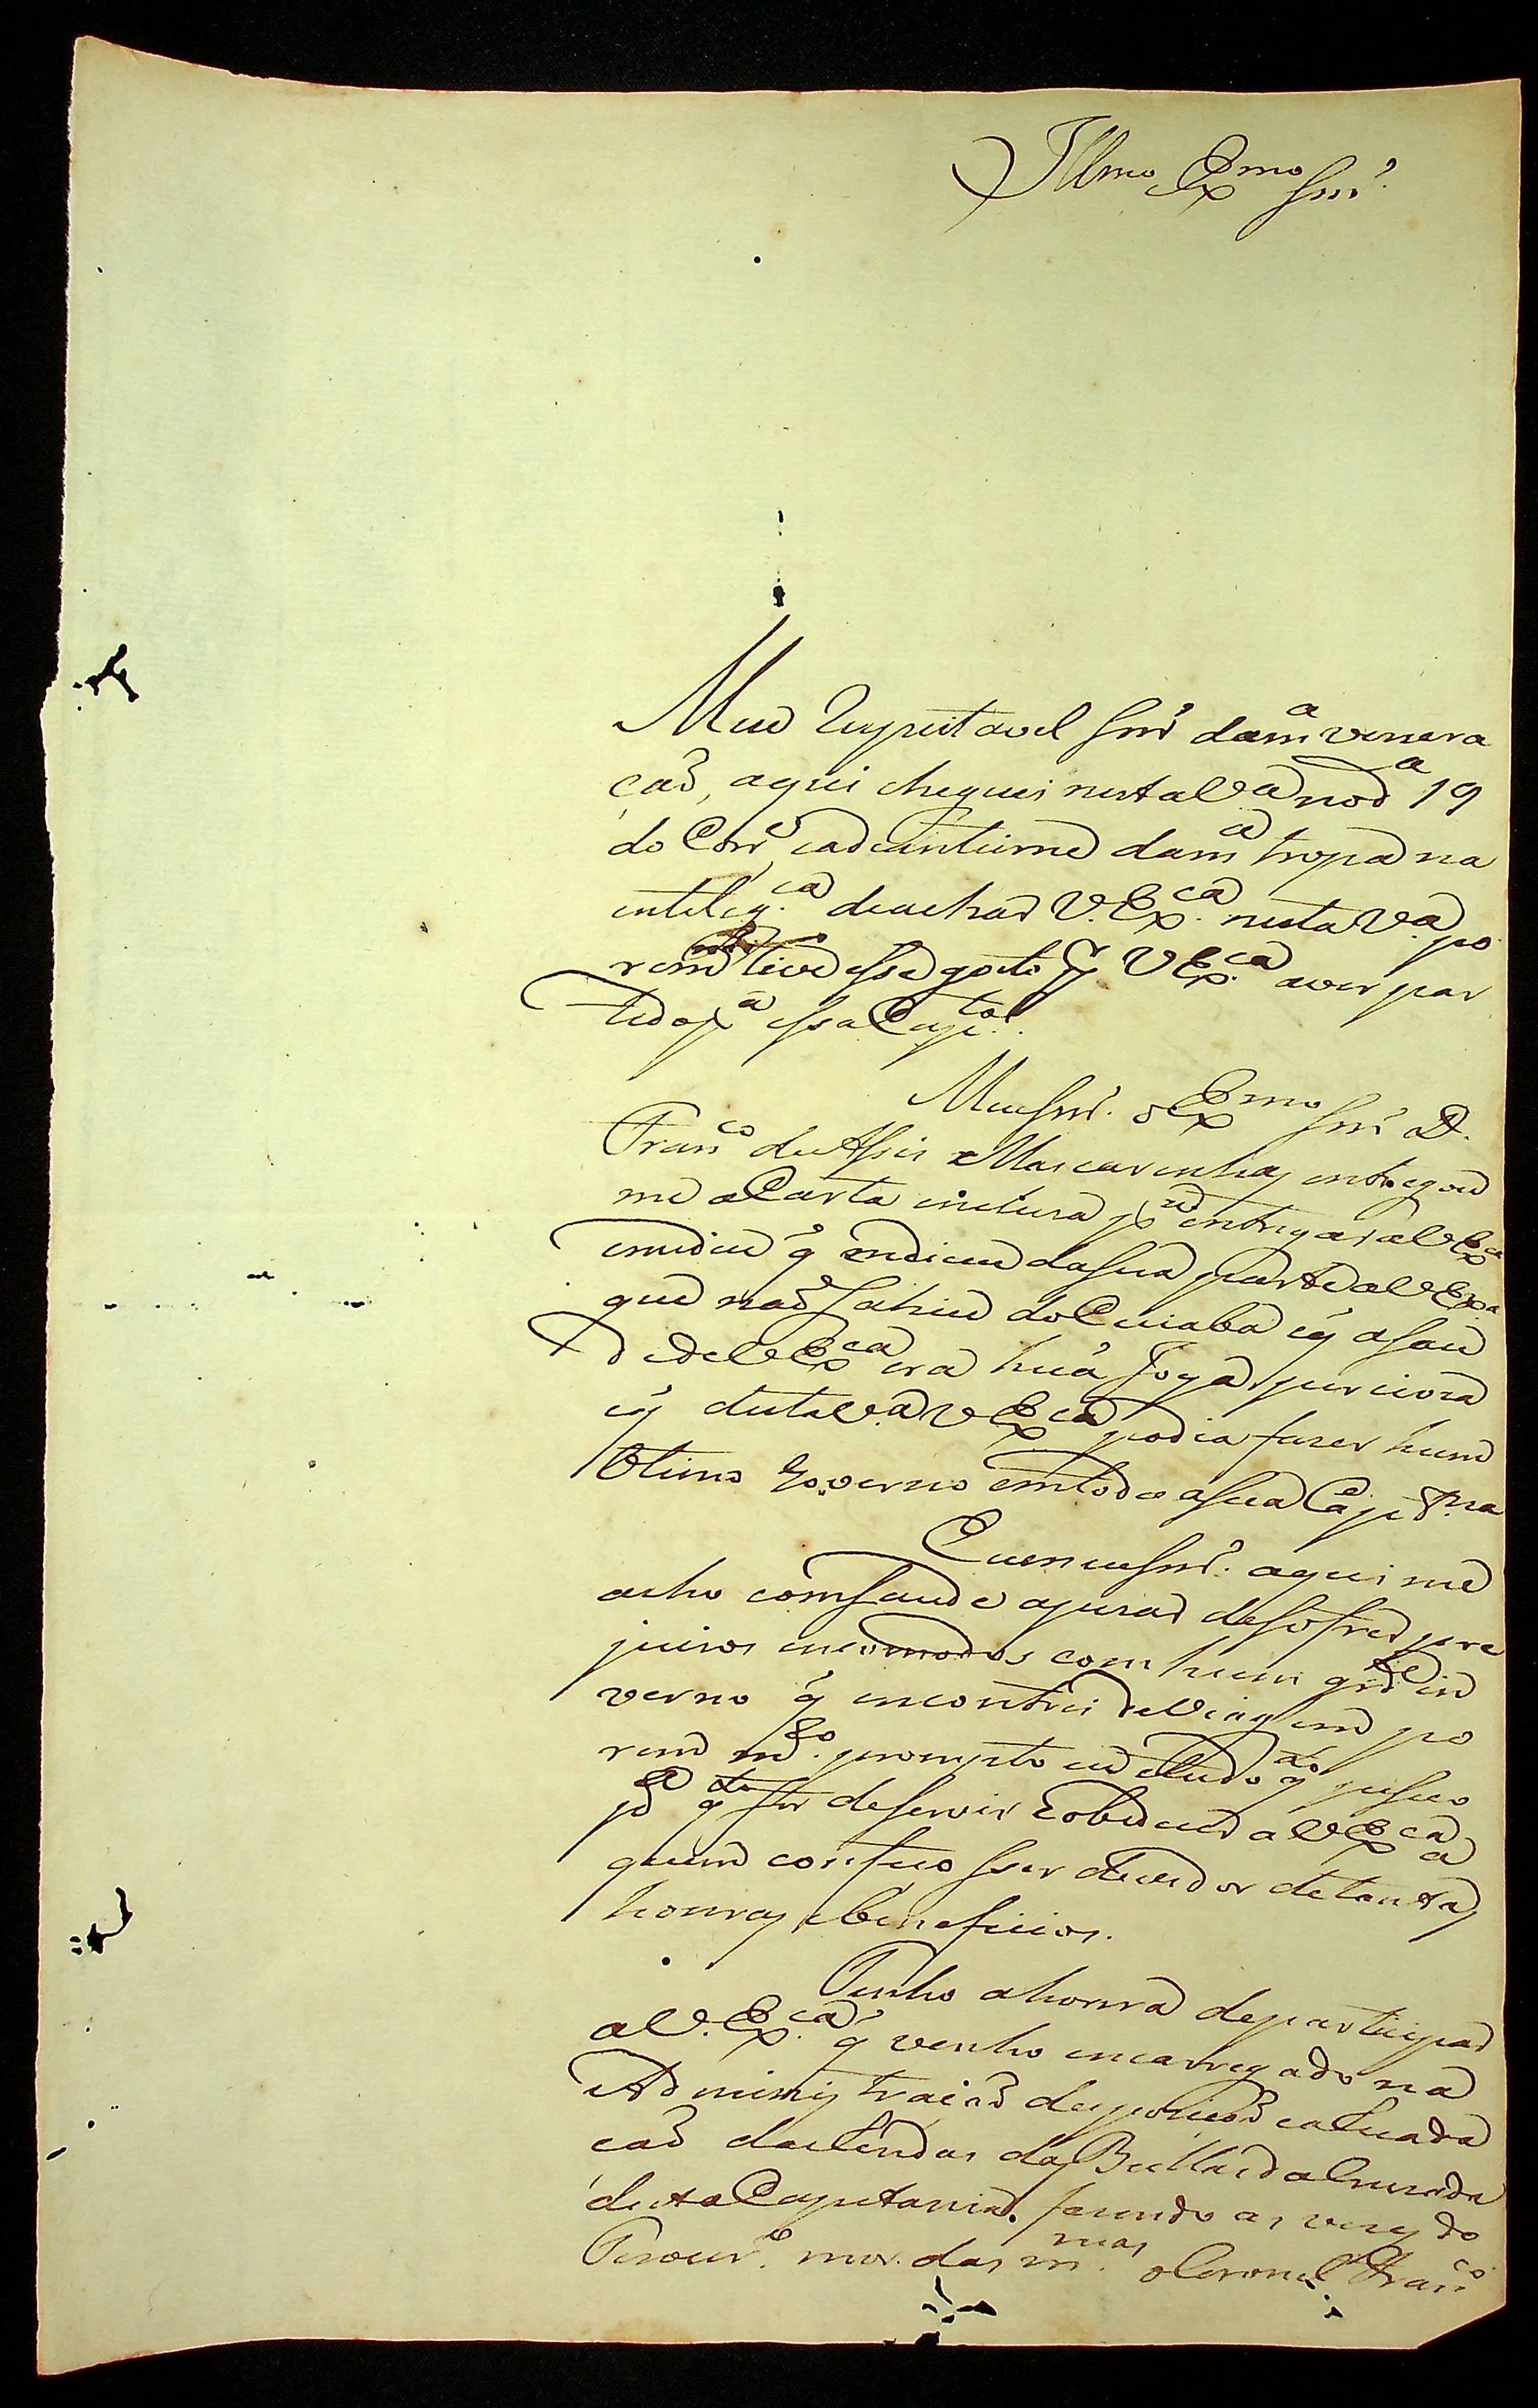 Illmo Exmo Snr.
Meu Respeitavel Snr da ma venera
caõ, aqui cheguei nesta Va no da 19
do Corre, e adeantei me da ma tropa na
inteleg.ca de achar V. Ex.ca nesta Va. po
rem tive esse gosto q. V Ex.ca aver par
tido pa essa Capi.tal.
Meu Snr. o Exmo Snr D.
Franco de Assis Mascarenhas entregou
me a Carta inclusa pa entregar a V Exca
e me dice q̃ endicace da sua parte a V Exa
que naõ sahice do Cuiaba e q̃ a sau
de de V Exca era huã Joya perciosa
e q̃ desta V.a V Exca podia fazer hum
Otimo Governo em toda a sua Capi
E eu meu Snr. aqui me
acho com saude apezar de sofrer pre
juizos incomodos com hum grde in
verno q̃ encontrei de Viagem po
rem prompto em tudo q̃ 
pa q̃ for de servir e obedecer a V Exca a
quem confeço ser devedor de tantas
honras e beneficios.
Tenho a honra de participar
a V. Ex.ca q̃ venho encarregado na
Administraçaõ 
caõ das Rendas da Bulla da Cruzada
desta Capitania. fazendo as vezes do
Tesour.o mor. das m.mas o Coronel Franco